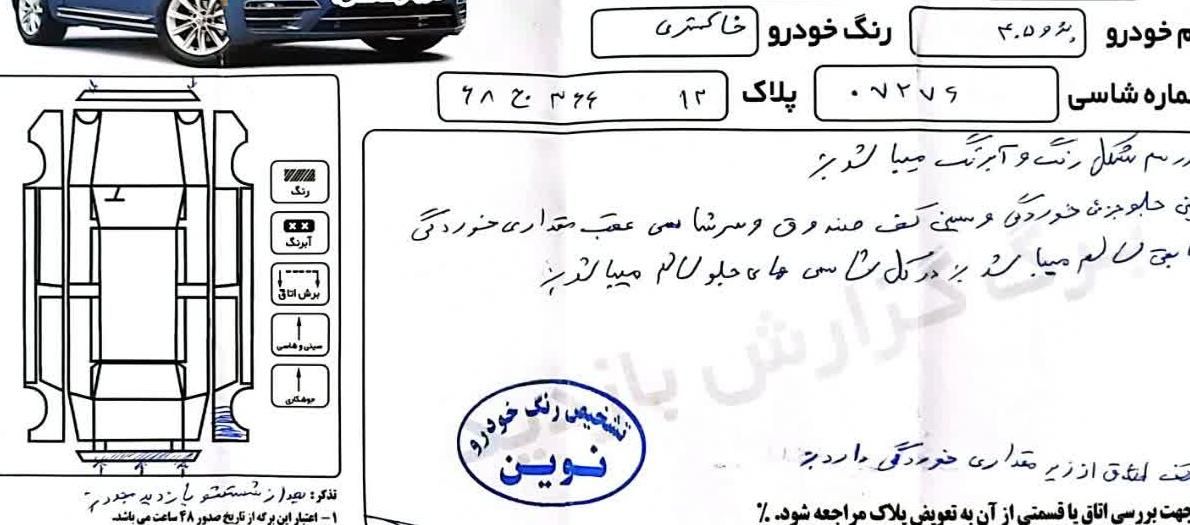 م خودرو پژو ۴۰۵ رنگ خودرو خاکستری
ماره شاسی ۰۷۲۷۶ پلاک ۱۲ ۳۶۶ ج ۶۸
شکل رنگ و آبرنگ میباشد
جلو جزئی خوردگی و سینی کف صندوق و سرشاسی عقب مقداری خوردگی
سالم میباشد در کل شاسی های جلو سالم میباشد
رنگ
آبرنگ
برش اتاق
سینی و شاسی
جوشکاری
برگ گزارش بازدید
تشخیص رنگ خودرو
نوین
کف اطاق از زیر مقداری خوردگی دارد
تذکر: بعد از شستشو بازدید مجدد
۱- اعتبار این برگه از تاریخ صدور ۴۸ ساعت می باشد.
جهت بررسی اتاق یا قسمتی از آن به تعویض پلاک مراجعه شود. ٪